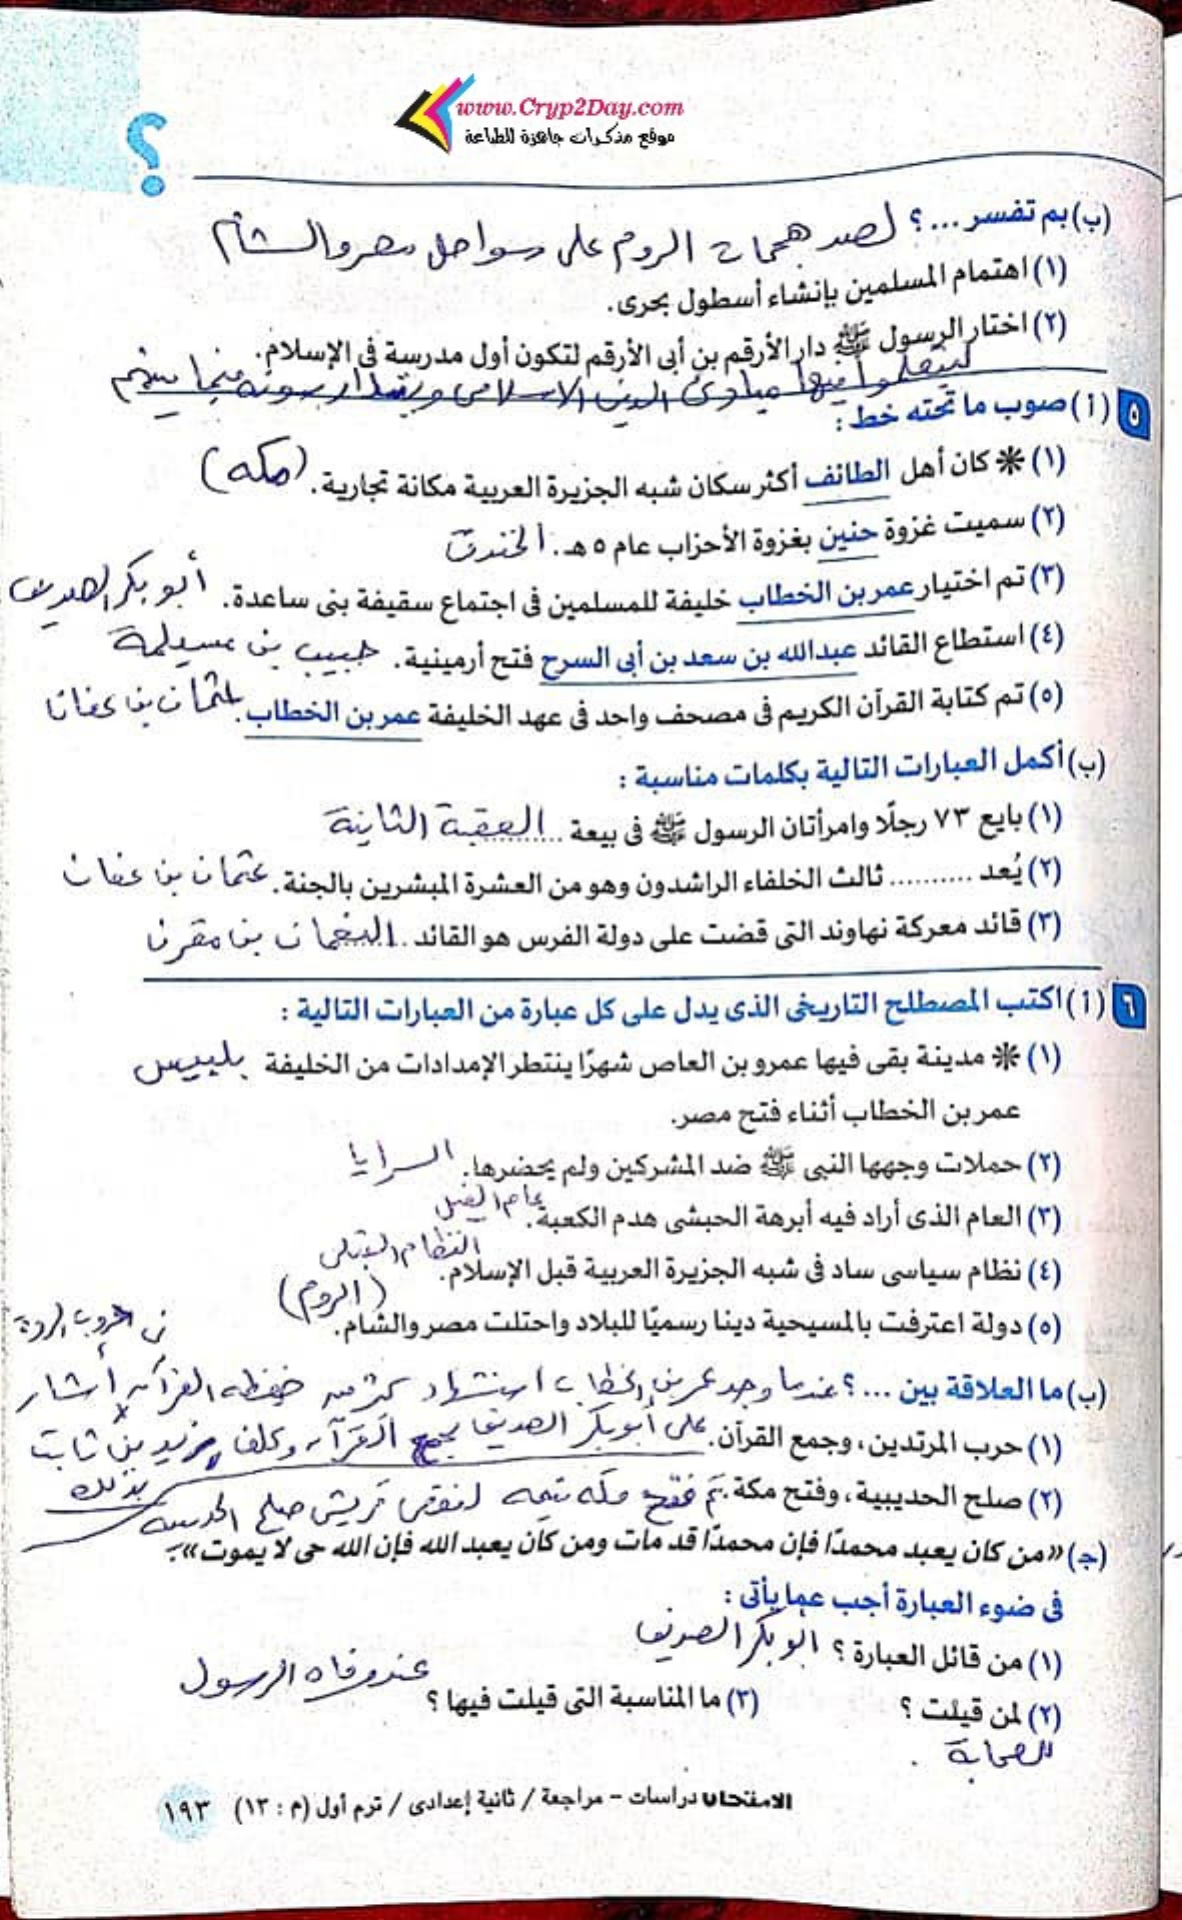 www.Cryp2Day.com
موقع مذكرات جاهزة للطباعة
؟
(ب) بم تفسر ... ؟ لصد هجمات الروم على سواحل مصر والشام
(١) اهتمام المسلمين بإنشاء أسطول بحرى.
(٢) اختار الرسول ﷺ دار الأرقم بن أبى الأرقم لتكون أول مدرسة فى الإسلام.
ليتعلموا فيها مبادئ الدين الاسلامى ويتدارسونه فيما بينهم
٥ (أ) صوب ما تحته خط :
(١) * كان أهل الطائف أكثر سكان شبه الجزيرة العربية مكانة تجارية. (مكه)
(٢) سميت غزوة حنين بغزوة الأحزاب عام ٥ هـ. الخندق
(٣) تم اختيار عمر بن الخطاب خليفة للمسلمين فى اجتماع سقيفة بنى ساعدة. أبو بكر الصديق
(٤) استطاع القائد عبدالله بن سعد بن أبى السرح فتح أرمينية. حبيب بن مسيلمة
(٥) تم كتابة القرآن الكريم فى مصحف واحد فى عهد الخليفة عمر بن الخطاب. عثمان بن عفان
(ب) أكمل العبارات التالية بكلمات مناسبة :
(١) بايع ٧٣ رجلًا وامرأتان الرسول ﷺ فى بيعة .......... العقبة الثانية
(٢) يُعد .......... ثالث الخلفاء الراشدون وهو من العشرة المبشرين بالجنة. عثمان بن عفان
(٣) قائد معركة نهاوند التى قضت على دولة الفرس هو القائد .. النعمان بن مقرن
٦ (أ) اكتب المصطلح التاريخى الذى يدل على كل عبارة من العبارات التالية :
(١) * مدينة بقى فيها عمرو بن العاص شهرًا ينتظر الإمدادات من الخليفة بلبيس
عمر بن الخطاب أثناء فتح مصر.
(٢) حملات وجهها النبى ﷺ ضد المشركين ولم يحضرها. السرايا
(٣) العام الذى أراد فيه أبرهة الحبشى هدم الكعبة. عام الفيل
(٤) نظام سياسى ساد فى شبه الجزيرة العربية قبل الإسلام. النظام القبلى
(٥) دولة اعترفت بالمسيحية دينا رسميًا للبلاد واحتلت مصر والشام. (الروم)
فى حروب الردة
(ب) ما العلاقة بين ... ؟ عندما وجد عمر بن الخطاب استشهاد كثير من حفظه القرآن أشار
(١) حرب المرتدين، وجمع القرآن. على أبو بكر الصديق بجمع القرآن وكلف زيد بن ثابت
بذلك
(٢) صلح الحديبية، وفتح مكة. تم فتح مكه نتيجه لنقض قريش صلح الحديبية
(جـ) «من كان يعبد محمدًا فإن محمدًا قد مات ومن كان يعبد الله فإن الله حى لا يموت».
فى ضوء العبارة أجب عما يأتى :
(١) من قائل العبارة ؟ ابو بكر الصديق
(٢) لمن قيلت ؟ (٣) ما المناسبة التى قيلت فيها ؟ عند وفاه الرسول
للصحابة .
الامتحان دراسات - مراجعة / ثانية إعدادى / ترم أول (م : ١٣) ١٩٣